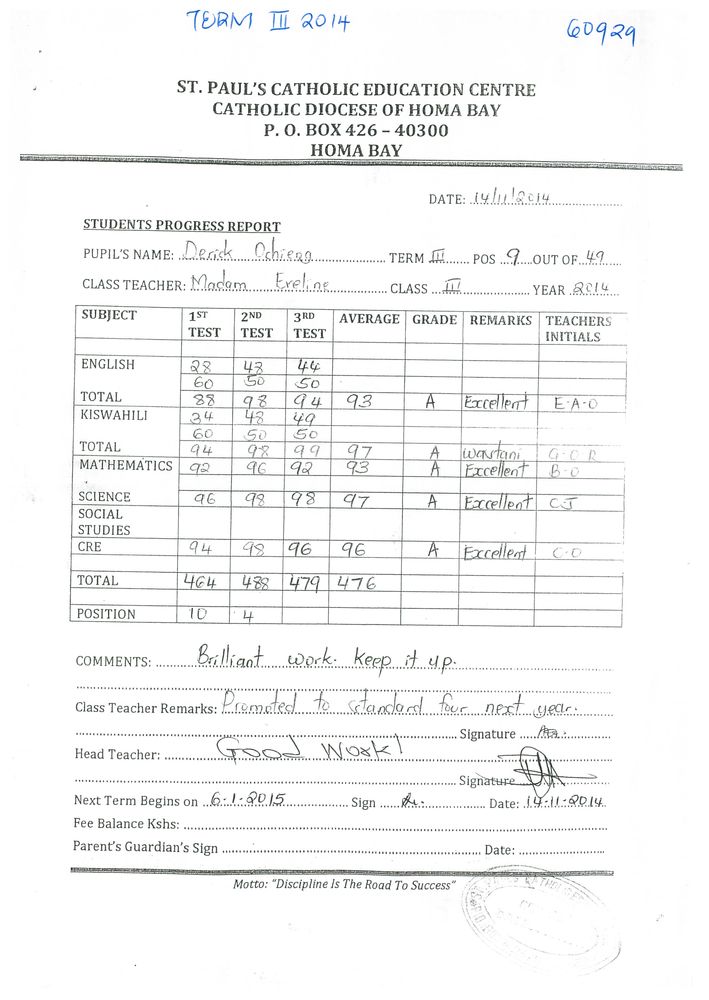 TERM III 2014
60929
ST. PAUL'S CATHOLIC EDUCATION CENTRE
CATHOLIC DIOCESE OF HOMA BAY
P. O. BOX 426 – 40300
HOMA BAY
DATE: 14/11/2014
STUDENTS PROGRESS REPORT
PUPIL'S NAME: Derick Ochieng TERM III POS 9 OUT OF 49
CLASS TEACHER: Madam Eveline CLASS III YEAR 2014
SUBJECT 1ST TEST 2ND TEST 3RD TEST AVERAGE GRADE REMARKS TEACHERS INITIALS
ENGLISH 28 48 44
60 50 50
TOTAL 88 98 94 93 A Excellent E-A-O
KISWAHILI 34 48 49
60 50 50
TOTAL 94 98 99 97 A wastani G-O R
MATHEMATICS 92 96 92 93 A Excellent B-O
SCIENCE 96 98 98 97 A Excellent CJ
SOCIAL STUDIES
CRE 94 98 96 96 A Excellent C-O
TOTAL 464 488 479 476
POSITION 10 4
COMMENTS: Brilliant work. Keep it up.
Class Teacher Remarks: Promoted to standard four next year.
Signature
Head Teacher: Good Work!
Signature
Next Term Begins on 6-1-2015 Sign Date: 14-11-2014
Fee Balance Kshs:
Parent's Guardian's Sign Date:
Motto: "Discipline Is The Road To Success"